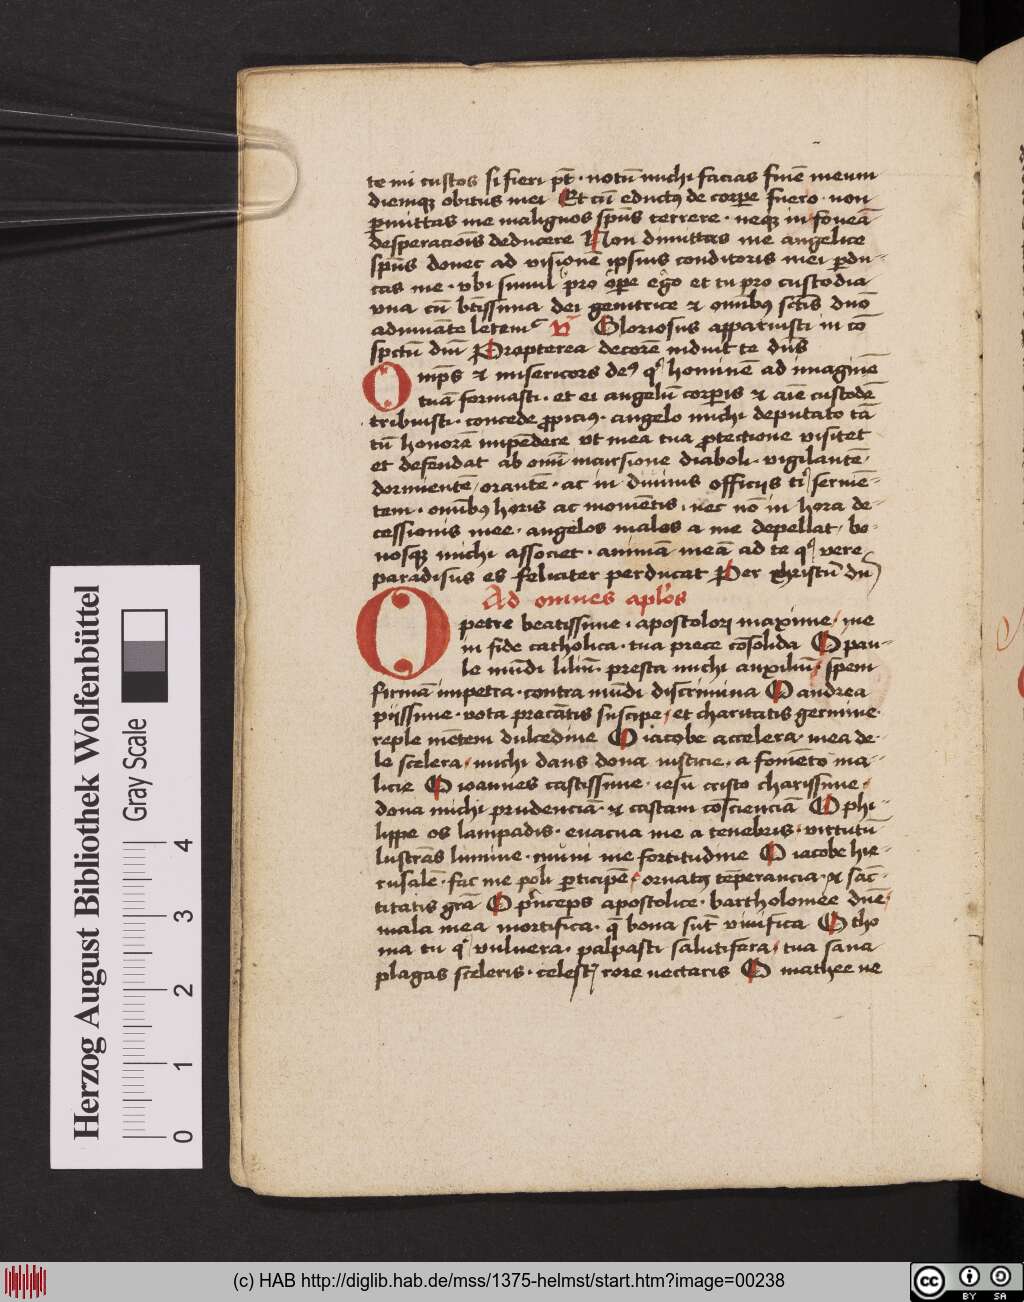 te mi custos si fieri pt̄ · notū michi facias finē meum
diemqȝ obitus mei Et cū eductꝰ de corꝑe fuero · non
ꝑmittas me malignos spūs terrere · neqȝ in foueā
desperacioīs deducere Non dimittas me angelice
spūs donec ad visionē ipsius conditoris mei ꝑdu-
cas me · vbi simul pro oꝑe ego et tu pro custodia
vna cū btīssima dei genitrice et omībꝰ sctīs dūo
adiuuāte letemʳ vʳ Gloriosus apparuisti in cō
spctū dnī Propterea decorē induit te dūs
Omps̄ et misericors deꝰ qͥ hominē ad imaginē
tuā formasti · et ei angelū corꝑis et aīe custodē
tribuisti · concede ꝓpiciꝰ · angelo michi deputato tā
tū honorē impēdere vt mea tua ꝓtectione visitet
et defendat ab omī incursione diaboli · vigilantē
dormientē orantē · ac in diuinis officijs tiͥ seruiē-
tem · omībꝰ horis ac momētis · nec nō in hora de-
cessionis mee · angelos malos a me depellat · bo-
nosqȝ michi associet · animā meā ad te qͥ vere
paradisus es feliciter perducat Per christū dn̄
Ad omnes aplōs
O petre beatissime · apostoloꝝ maxime · me
in fide catholica · tua prece cōsolida O pau-
le mūdi liliū · presta michi auxiliū · spem
firmā impetra · contra mūdi discrimina O andrea
piissime · vota precātis suscipe · et charitatis germine ·
reple mētem dulcedine O iacobe accelera · mea de-
le scelera · michi dans dona iusticie · a fomēto ma-
licie O ioannes castissime · iesu cristo charissime ·
dona michi prudenciā · et castam cōscienciā O phi-
lippe os lampadis · euacua me a tenebris · virtutū
lustrās lumine · muni me fortitudine O iacobe hie-
rusalē · fac me poli ꝑticipē · ornatꝫ tēperancia · et sāc-
titatis grā O pͥnceps apostolice · bartholomee dūe ·
mala mea mortifica · q̄ bona sūt viuifica O tho
ma tu qͥ vulnera · palpasti salutifera · tua sana
plagas sceleris · celestj rore nectaris O mathee ne
Herzog August Bibliothek Wolfenbüttel
Gray Scale
0 1 2 3 4
(c) HAB http://diglib.hab.de/mss/1375-helmst/start.htm?image=00238
cc BY SA